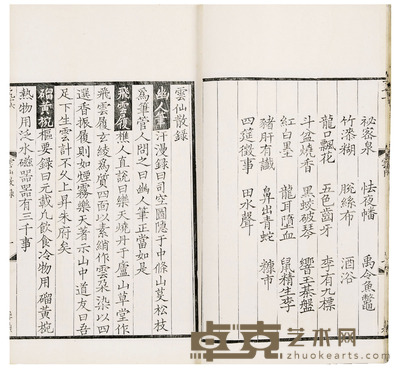 祕密泉　怯夜幡　禹令魚鼈
竹漆糊　脘絲布　酒浴
龍口飄花　五色齒牙　李有九標
斗盆燒香　黑蛟破琴　響玉棊盤
紅白墨　龍耳墮血　鼠精生李
豬肝有讖　鼻出青蛇　糠市
四筵徵事　田水聲
雲仙散錄
幽人筆　汗漫錄曰司空圖隱于中條山芟松枝
為筆管人問之曰幽人筆正當如是
飛雲履　樵人直說曰樂天燒丹于廬山草堂作
飛雲履玄綾為質四面以素綃作雲朵染以四
選香振履則如煙霧樂天著示山中道友曰吾
足下生雲計不久上昇朱府矣
磂黃椀　樞要錄曰元載凡飲食冷物用磂黃椀
熱物用泛水磁器器有三千事
卓克艺术网
zhuokearts.com